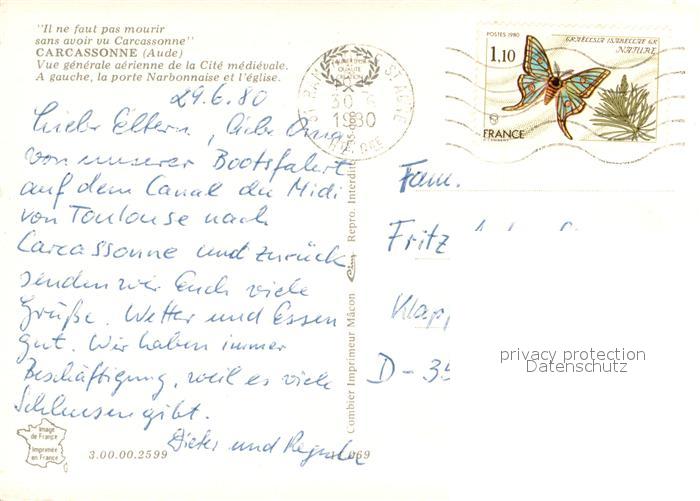 "Il ne faut pas mourir
sans avoir vu Carcassonne"
CARCASSONNE (Aude)
Vue générale aérienne de la Cité médiévale.
A gauche, la porte Narbonnaise et l'église.
29.6.80
Liebe Eltern, liebe Oma
von unserer Bootsfahrt
auf dem Canal du Midi
von Toulouse nach
Carcassonne und zurück
senden wir Euch viele
Grüße. Wetter und Essen
gut. Wir haben immer
Beschäftigung, weil es viele
Schleusen gibt.
Dieter und
Image
de France
Imprimée
en France
3.00.00.2599
069
Combier Imprimeur Mâcon
Repro. Interdite
30
1980
POSTES 1980
GRAELLSIA ISABELLAE GR
NATURE
1,10
FRANCE
Fam.
Fritz
Klapp
D - 35
privacy protection
Datenschutz